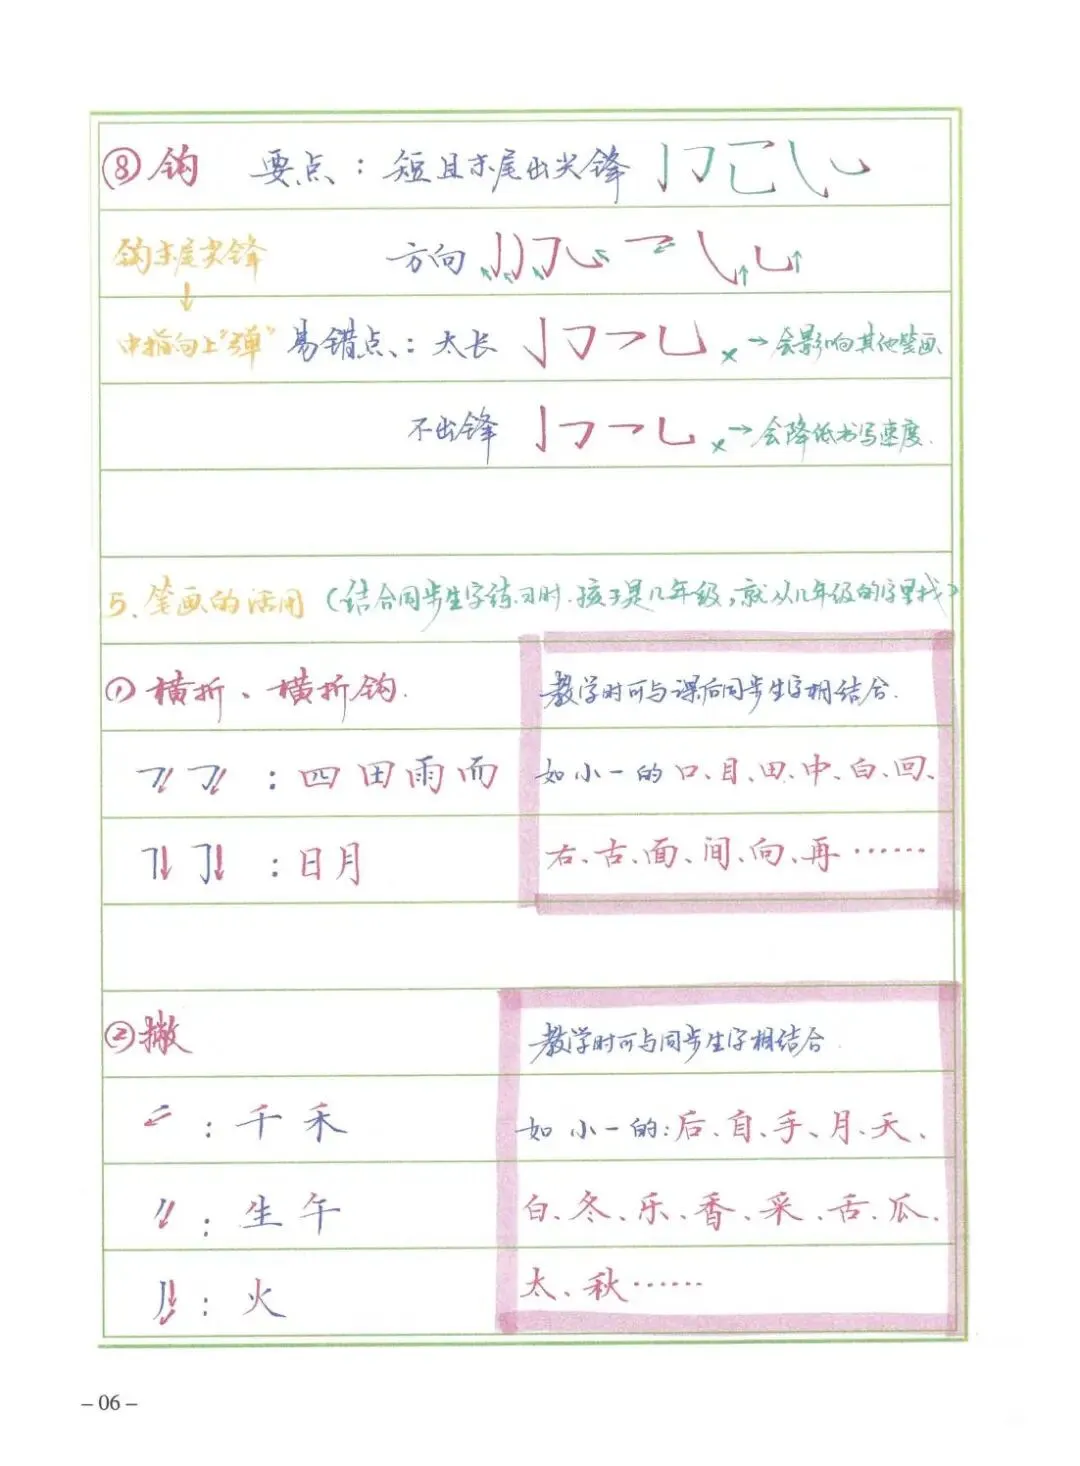 ⑧ 钩 要点：短且末尾出尖锋
钩末尾尖锋 方向
中指向上“弹” 易错点：太长 × → 会影响其他笔画
不出锋 × → 会降低书写速度.
5. 笔画的活用（结合同步生字练习时.孩子是几年级，就从几年级的字里找）
① 横折、横折钩. 教学时可与课后同步生字相结合.
：四田雨而 如小一的口、目、田、中、白、回、
：日月 右、古、面、间、向、再……
② 撇 教学时可与同步生字相结合.
：千禾 如小一的：后、自、手、月、天、
：生午 白、冬、乐、香、采、舌、瓜、
：火 太、秋……
– 06 –